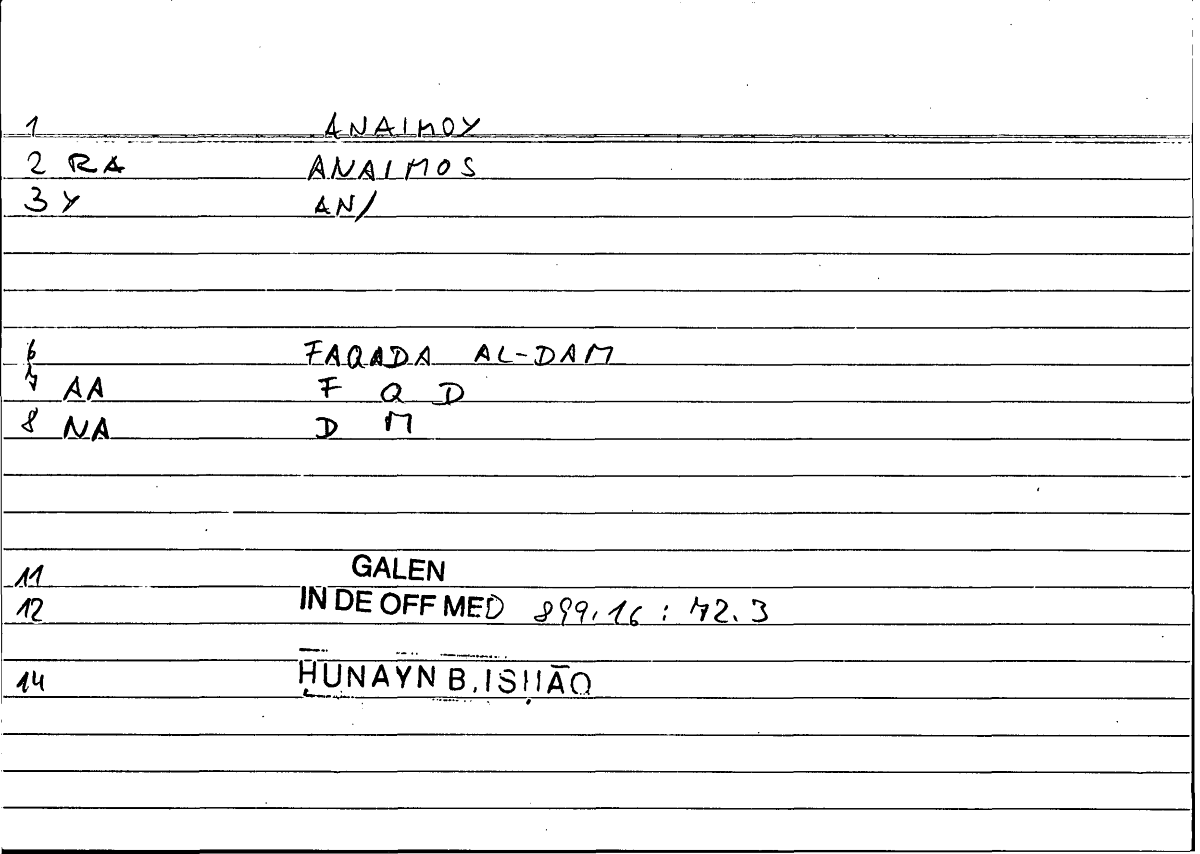 1 ANAIMOY
2 RA ANAIMOS
3 Y AN/
6 FAQADA AL-DAM
7 AA F Q D
8 NA D M
11 GALEN
12 IN DE OFF MED 899.16 : 72.3
14 ḤUNAYN B. ISḤĀQ